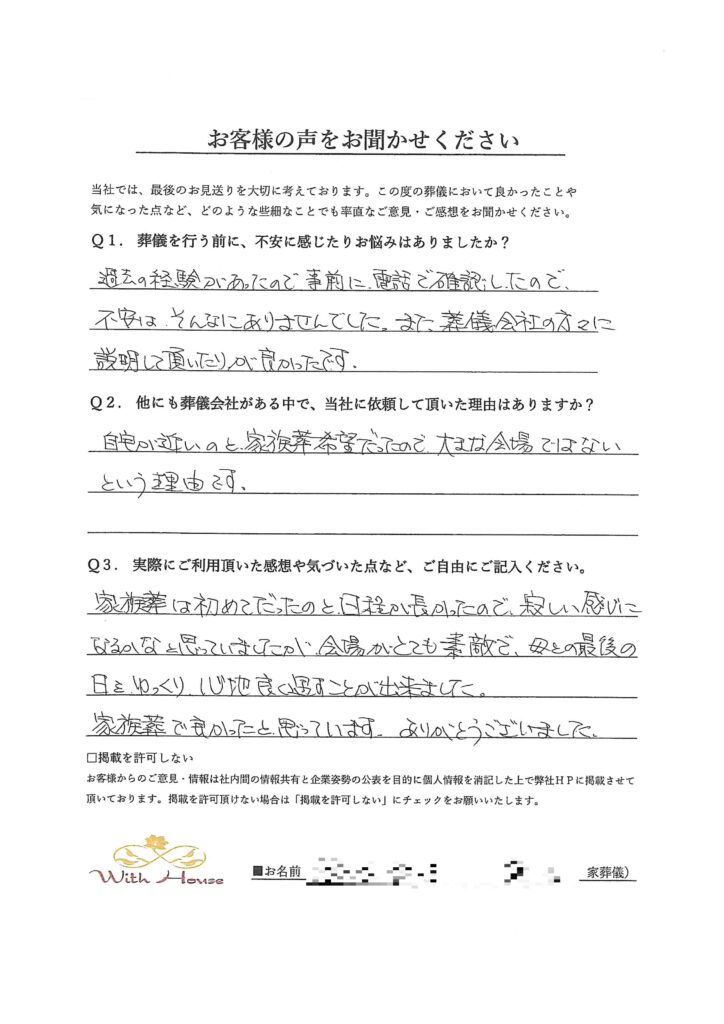 お客様の声をお聞かせください
当社では、最後のお見送りを大切に考えております。この度の葬儀において良かったことや
気になった点など、どのような些細なことでも率直なご意見・ご感想をお聞かせください。
Q1. 葬儀を行う前に、不安に感じたりお悩みはありましたか?
過去の経験があったので事前に、電話で確認したので、
不安は、そんなにありませんでした。また葬儀会社の方々に
説明して頂いたりが良かったです。
Q2. 他にも葬儀会社がある中で、当社に依頼して頂いた理由はありますか?
自宅が近いのと、家族葬希望だったので、大きな会場ではない
という理由です。
Q3. 実際にご利用頂いた感想や気づいた点など、ご自由にご記入ください。
家族葬は初めてだったのと、日程が長かったので、寂しい感じに
なるかなと思っていましたが、会場がとても素敵で、母との最後の
日をゆっくり、心地良く過すことが出来ました。
家族葬で良かったと、思っています。ありがとうございました。
□掲載を許可しない
お客様からのご意見・情報は社内間の情報共有と企業姿勢の公表を目的に個人情報を消記した上で弊社HPに掲載させて
頂いております。掲載を許可頂けない場合は「掲載を許可しない」にチェックをお願いいたします。
With House
■お名前 家葬儀)